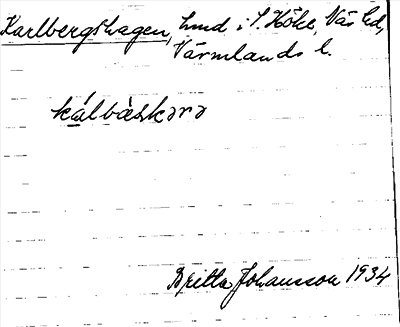 Karlbergshagen, hmd i S. Höke, Väse hd,
Värmlands l.
kálbàskərə
Britta Johansson 1934